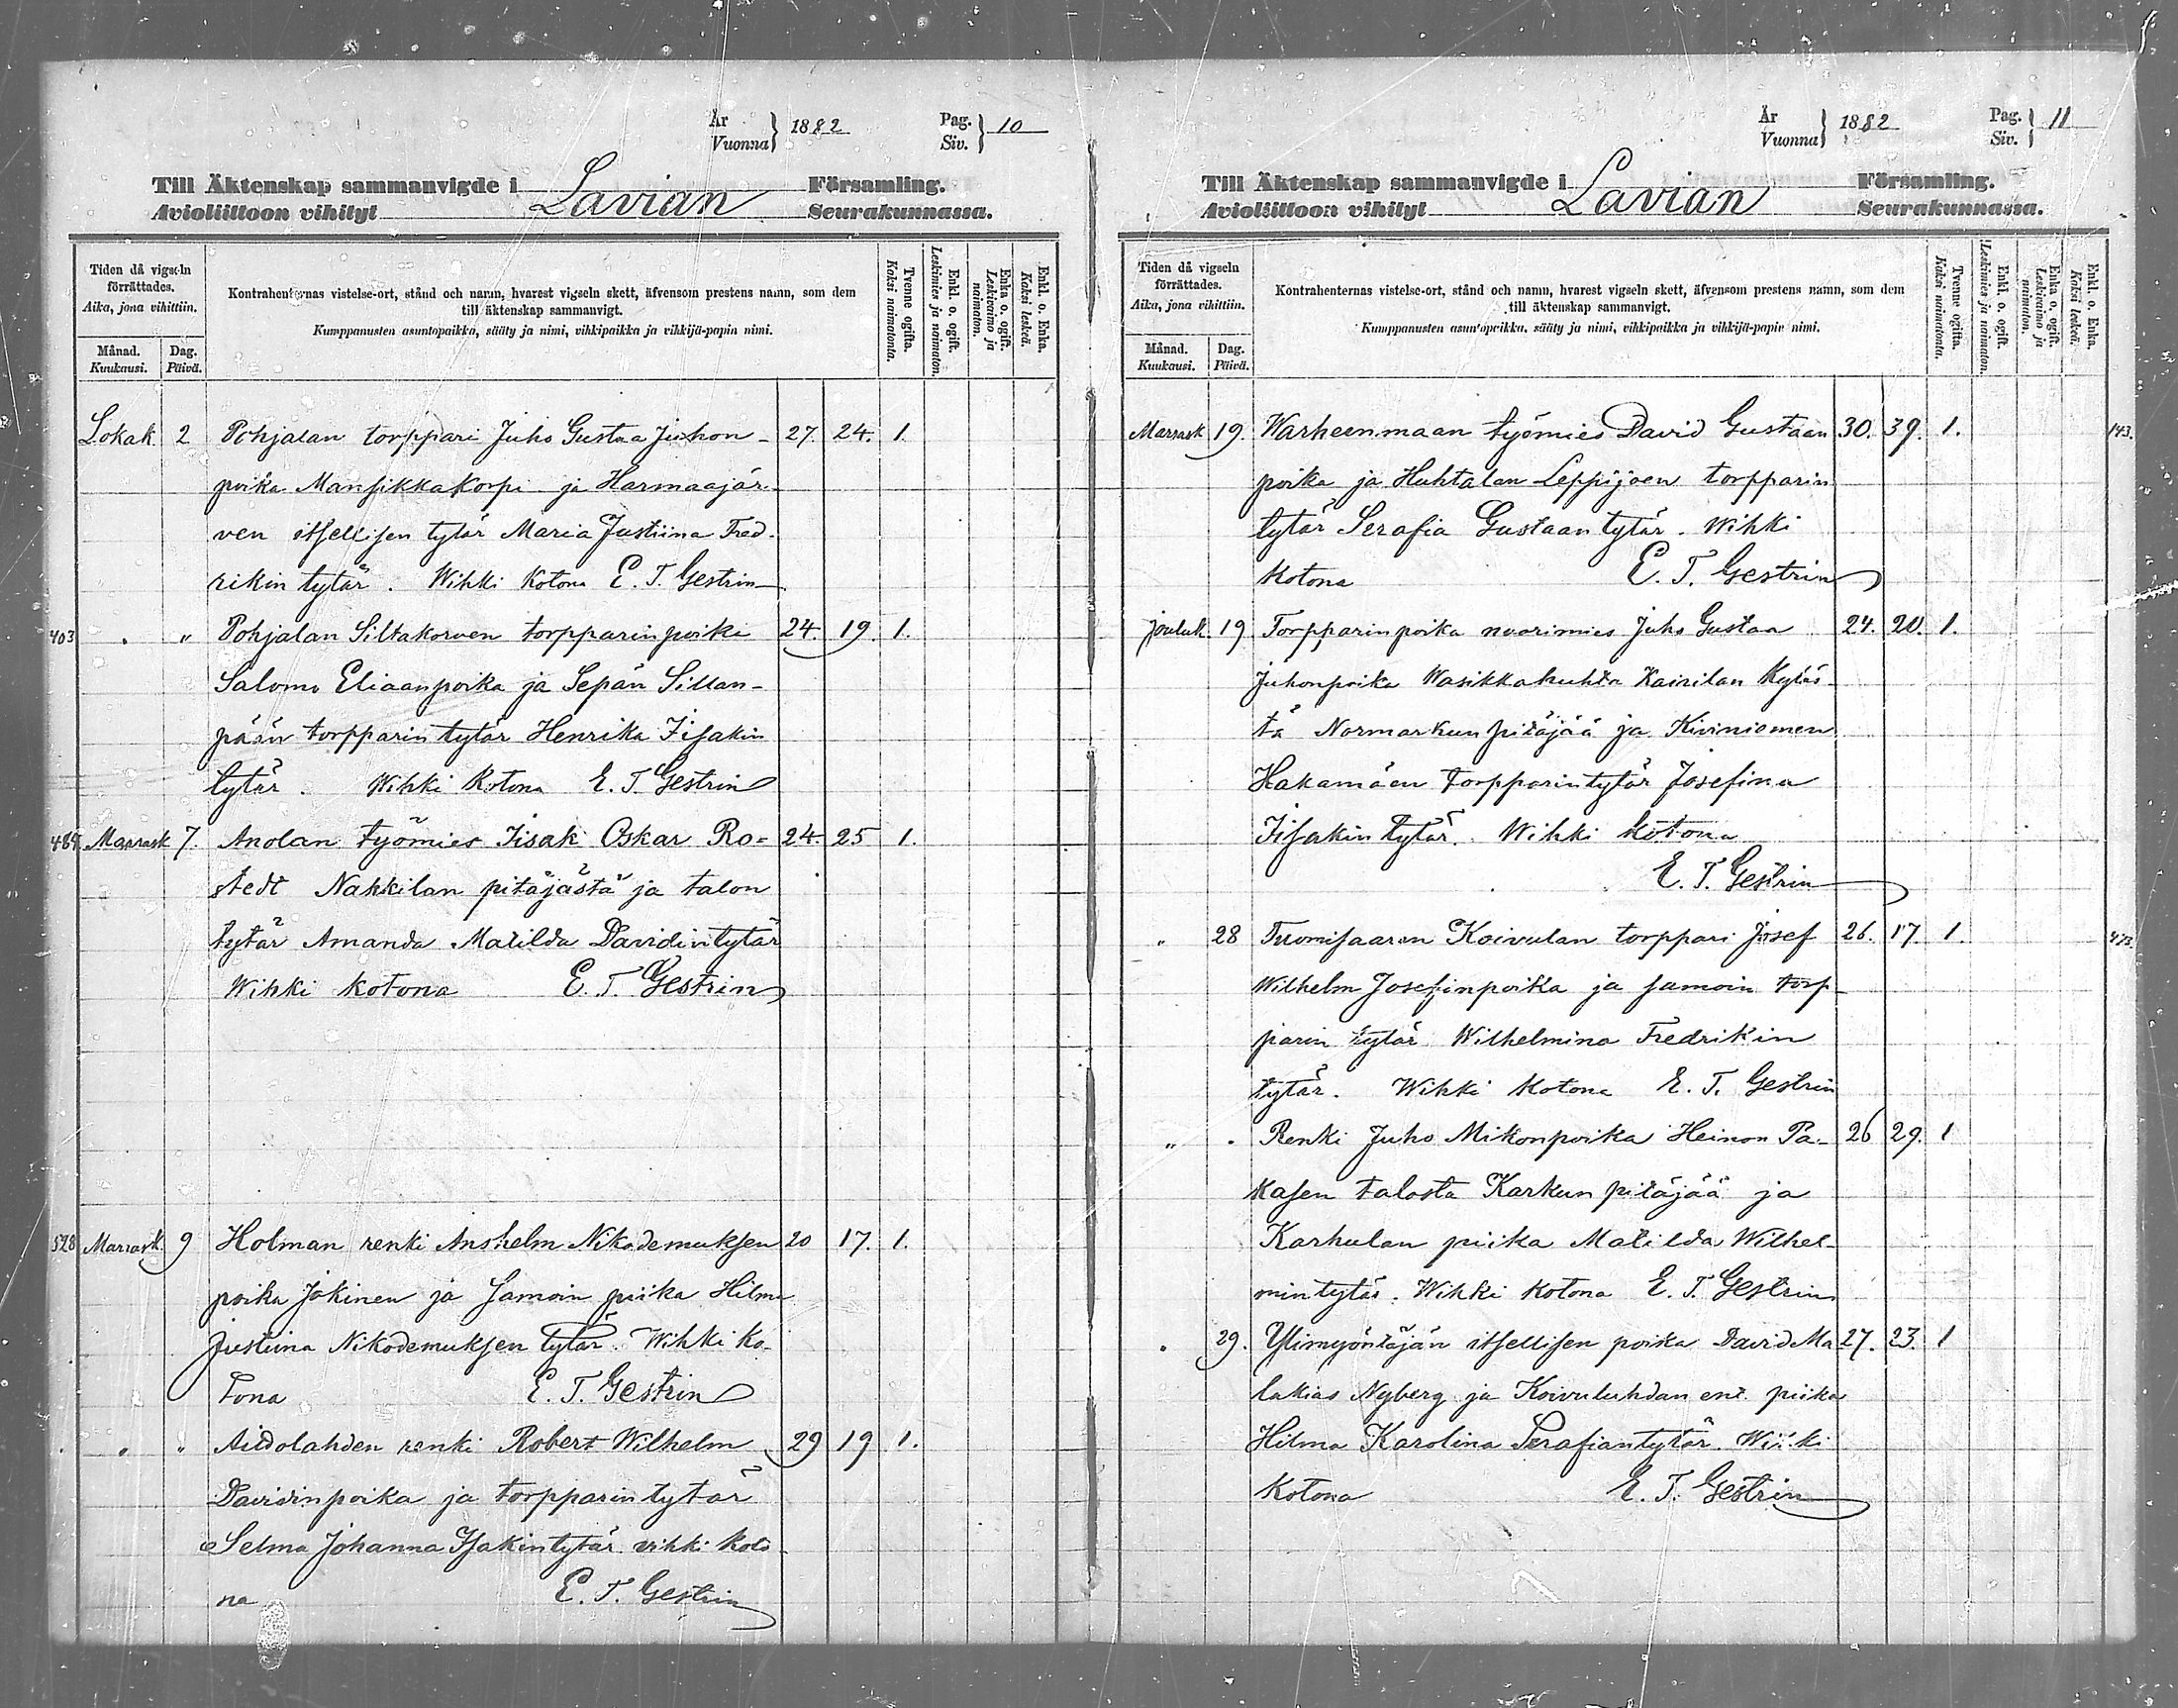 År
Vuonna } 1882 Pag.
Siv. } 10
Till Äktenskap sammanvigde i Lavian Församling.
Avioliittoon vihityt Seurakunnassa.
Tiden då vigseln
förrättades.
Aika, jona vihittiin.
Månad.
Kuukausi.
Dag.
Päivä.
Kontrahenternas vistelse-ort, stånd och namn, hvarest vigseln skett, äfvensom prestens namn, som dem
till äktenskap sammanvigt.
Kumppanusten asuntopaikka, sääty ja nimi, vihkipaikka ja vihkijä-papin nimi.
Tvenne ogifta.
Kaksi naimatonta.
Enkl. o. ogift.
Leskimies ja naimaton.
Enka o. ogift.
Leskivaimo ja
naimaton.
Enkl. o. Enka.
Kaksi leskeä.
Lokak. 2 Pohjalan torppari Juho Gustaa Juhon- 27. 24. 1.
poika Mansikkakorpi ja Harmaajär-
ven itsellisen tytär Maria Justiina Fred-
rikin tytär. Wihki kotona E. T. Gestrin
403 . " Pohjalan Siltakorven torpparin poika 24. 19. 1.
Salomo Eliaanpoika ja Sepän Sillan-
pään torpparin tytär Henrika Iisakin
tytär. Wihki kotona E. T. Gestrin
489 Marrask 7. Anolan työmies Iisak Oskar Ro- 24. 25 1.
stedt Nakkilan pitäjästä ja talon
tytär Amanda Matilda Davidintytär
Wihki kotona E. T. Gestrin
528 Marrask. 9 Holman renki Anshelm Nikodemuksen 20 17. 1.
poika Jokinen ja samoin piika Hilma
Justiina Nikodemuksen tytär. Wihki ko-
tona E. T. Gestrin
" " renki Robert Wilhelm 29 19 1.
Davidinpoika ja torpparin tytär
Selma Johanna Isakintytär vihki koto
na E. T. Gestrin
År
Vuonna } 1882 Pag.
Siv. } 11
Till Äktenskap sammanvigde i Lavian Församling.
Avioliittoon vihityt Seurakunnassa.
Tiden då vigseln
förrättades.
Aika, jona vihittiin.
Månad.
Kuukausi.
Dag.
Päivä.
Kontrahenternas vistelse-ort, stånd och namn, hvarest vigseln skett, äfvensom prestens namn, som dem
till äktenskap sammanvigt.
Kumppanusten asuntopaikka, sääty ja nimi, vihkipaikka ja vihkijä-papin nimi.
Tvenne ogifta.
Kaksi naimatonta.
Enkl. o. ogift.
Leskimies ja naimaton.
Enka o. ogift.
Leskivaimo ja
naimaton.
Enkl. o. Enka.
Kaksi leskeä.
Marrask 19. Warheenmaan työmies David Gustaan 30. 39. 1. 143.
poika ja Huhtalan Leppijoen torpparin
tytär Serafia Gustaan tytär. Wihki
kotona E. T. Gestrin
Jouluk. 19 Torpparin poika nuorimies Juho Gustaa 24. 20. 1.
Juhonpoika Wasikkahuhta Kairilan kyläs-
tä Normarkun pitäjää ja Kiviniemen
Hakamäen torpparintytär Josefina
Iisakin tytär. Wihki kotona
E. T. Gestrin
" 28 Tuomisaaren Koivulan torppari Josef 26. 17. 1.
Wilhelm Josefinpoika ja samoin torp-
parin tytär Wilhelmina Fredrikin
tytär. Wihki kotona E. T. Gestrin
" . Renki Juho Mikonpoika Heinon Pa- 26 29. 1
kasen talosta Karkun pitäjää ja
Karhulan piika Matilda Wilhel-
mintytär. Wihki kotona E. T. Gestrin
. 29. Ylimyöntäjän itsellisen poika David Ma- 27. 23. 1
lakias Nyberg ja Koivuluhdan ent. piika
Hilma Karolina Serafiantytär. Wihki
kotona E. T. Gestrin